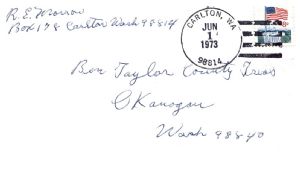 R.E. Morrow
Box 178 Carlton Wash 98814
CARLTON, WA
JUN
1
1973
98814
Ben Taylor County Treas
Okanogan
Wash 98840